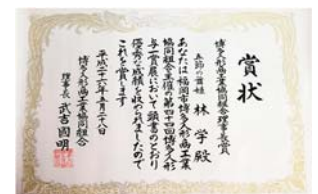 賞状
博多人形商工業協同組合理事長賞
五節の舞姫
林 学 殿
あなたは福岡市博多人形商工業
協同組合主催の第四十四回博多人形
与一賞展において頭書のとおり
優秀な成績を収められましたので
これを賞します
平成二十六年五月二十八日
博多人形商工業協同組合
理事長 武吉國明